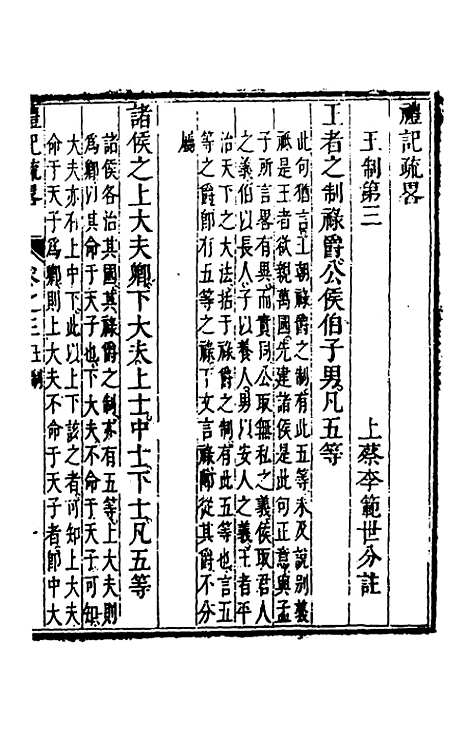 禮記疏畧
王制第三
上蔡李範世分註
王者之制祿爵公侯伯子男凡五等
此句猶言王朝祿爵之制有此五等未及說別義
祗是王者欲親萬國先建諸侯是此句正意與孟
子所言畧有異而實同公取無私之義侯取君人
之義伯以長人子以養人男以安人之義王者平
治天下之大法括于祿爵之制有此五等也言五
等之爵卽有五等之祿下文言祿亦從其爵不分
屬
諸侯之上大夫卿下大夫上士中士下士凡五等
諸侯各治其國其祿爵之制亦有五等上大夫則
爲卿以其命于天子也下大夫不命于天子可知
大夫亦有上中下此以上下該之者可知上大夫
命于天子爲卿則上大夫不命于天子者卽中大
禮記疏畧
卷之三王制